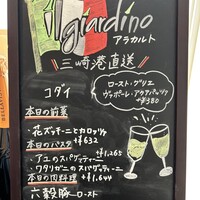 il giardino
アラカルト
三崎港直送
コダイ
ロースト・グリエ
ヴァポーレ・アクアパッツァ
+¥380
本日の前菜
・花ズッキーニとカロッツァ
+¥632
本日のパスタ
+¥1,265
・アユのスパゲッティーニ
・ワタリガニのスパゲッティーニ
本日の肉料理 +¥1,644
六穀豚 ロースト